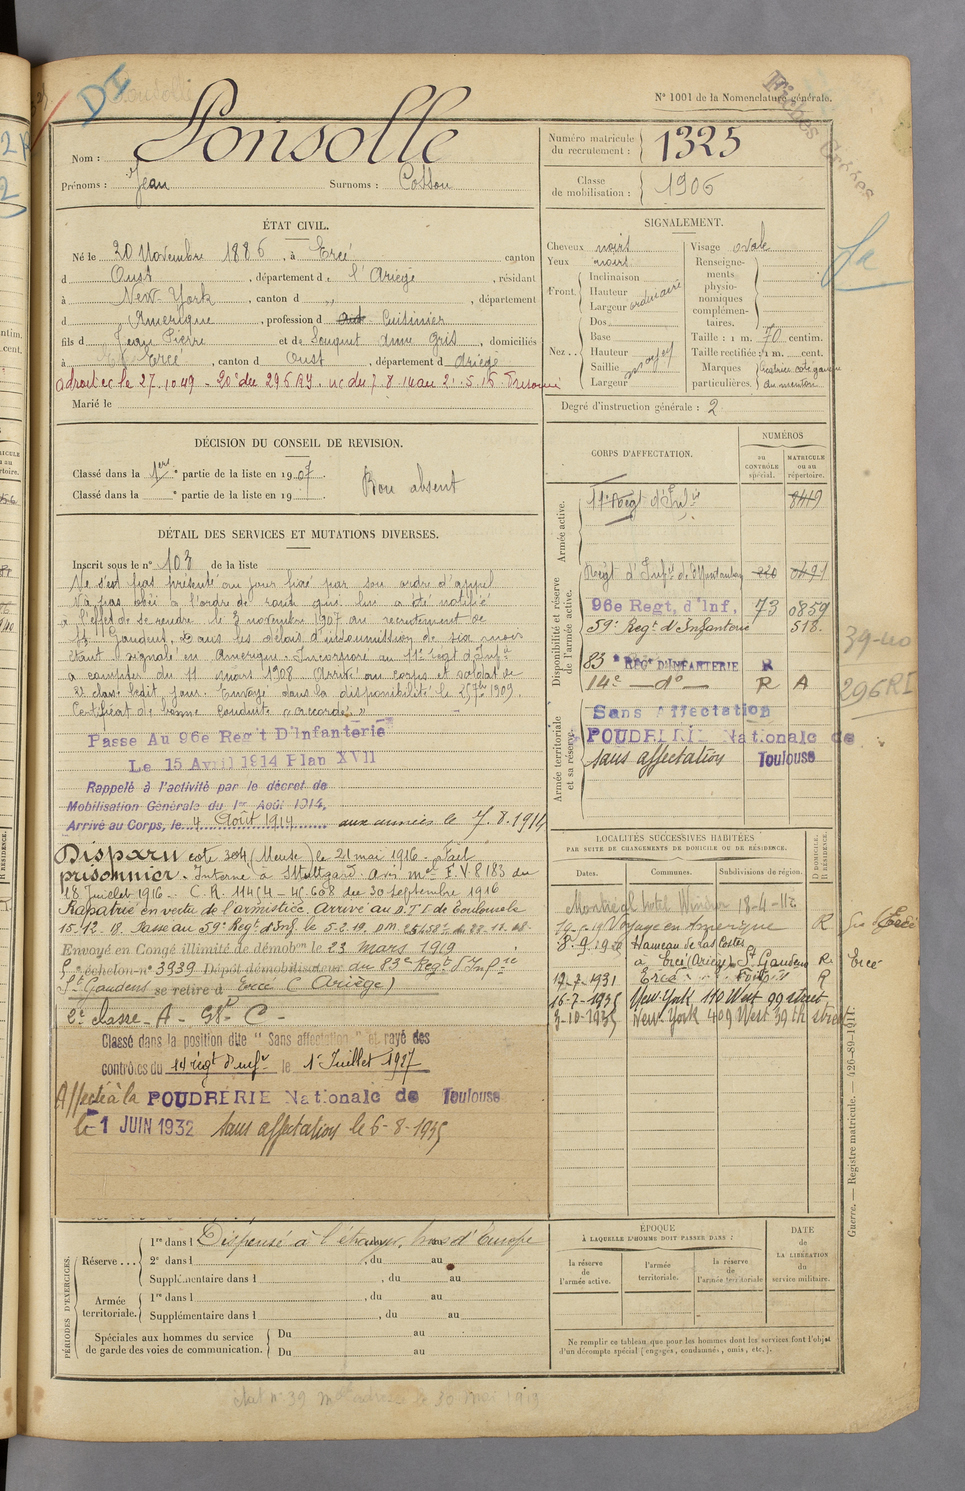 N° 1001 de la Nomenclature générale.
Nom : Ponsolle
Prénoms : Jean Surnoms : Cossou
Numéro matricule du recrutement : 1325
Classe de mobilisation : 1906
ÉTAT CIVIL.
Né le 20 Novembre 1886, à Ercé canton
d Oust, département d e l'Ariège, résidant
à New-York, canton d „, département
d Amérique, profession d Cuisinier
fils d Jean Pierre et de Souquet Anne Gris, domiciliés
à Ercé, canton d Oust, département d Ariège
Marié le
SIGNALEMENT.
Cheveux noirs
Yeux noirs
Front. Inclinaison
Hauteur
Largeur ordinaire
Nez... Dos
Base
Hauteur
Saillie moyen
Largeur
Visage ovale
Renseignements physionomiques complémentaires.
Taille : 1 m. 70 centim.
Taille rectifiée : 1 m. cent.
Marques particulières. cicatrice coté gauche du menton
Degré d'instruction générale : 2
DÉCISION DU CONSEIL DE REVISION.
Classé dans la 1ere partie de la liste en 1907.
Classé dans la e partie de la liste en 19 .
Bon absent
DÉTAIL DES SERVICES ET MUTATIONS DIVERSES.
Inscrit sous le n° 103 de la liste
Ne s'est pas présenté au jour fixé par son ordre d'appel
N'a pas obéi à l'ordre de route qui lui a été notifié
à l'effet de se rendre le 3 novembre 1907 au recrutement de
St Gaudens, Dans les délais d'insoumission de six mois
étant signalé en Amérique. Incorporé au 11e régt d'Infie
à compter du 11 mars 1908. Arrivé au corps et soldat de
2e classe ledit jour. Envoyé dans la disponibilité le 25 7bre 1909.
Certificat de bonne conduite « accordé. »
Passé Au 96e Reg't D'Infanterie
Le 15 Avril 1914 Plan XVII
Rappelé à l'activité par le décret de
Mobilisation Générale du 1er Août 1914.
Arrivé au Corps, le 4 Août 1914 aux armées le 7.8.1914
Disparu cote 304 (Meuse) le 21 mai 1916. Fait
prisonnier. Interné à Stuttgard. Avis mel F.V. 8183 du
18 Juillet 1916. C.R. 11454 - 45.608 du 30 septembre 1916
Rapatrié en vertu de l'armistice. Arrivé au D.T.I. de Toulouse le
15-12-18. Passé au 59e Regt d'Inf. le 5-2-19.
Envoyé en Congé illimité de démobon le 23 mars 1919
échelon - n° 3939 Dépôt démobilisateur du 83e Regt d'Infie
St Gaudens se retire à Ercé (Ariège)
Classé dans la position dite "Sans affectation" et rayé des
contrôles du 14 régt d'infie le 1er Juillet 1927
Affecté à la POUDRERIE Nationale de Toulouse
le 1 JUIN 1932 sans affectation le 6-8-1935
CORPS D'AFFECTATION.
NUMÉROS
au CONTRÔLE spécial.
MATRICULE ou au répertoire.
Armée active.
11e Régt d'Infie 8449
Disponibilité et réserve de l'armée active.
Régt d'Infie de Montauban
96e Regt, d'Inf, 73 0859
59e Regt d'Infanterie 518.
83 REGt D'INFANTERIE R
14e — do — R A
Armée territoriale et sa réserve.
Sans Affectation
POUDRERIE Nationale de Toulouse
sans affectation
39-40
296 RI
LOCALITÉS SUCCESSIVES HABITÉES
PAR SUITE DE CHANGEMENTS DE DOMICILE OU DE RÉSIDENCE.
Dates. Communes. Subdivisions de région. D DOMICILE. R RÉSIDENCE.
Montréal hotel Windsor 18-4-12
Voyage en Amérique R
8-9-1920 Hameau de las Costes
à Ercé (Ariège) St Gaudens R
12-2-1931 Ercé Foix R
16-2-1935 New-York 140 West 99 street
3-10-1935 New-York 409 West 39 th street
Guerre. — Registre matricule. — 426-89-1911.
PÉRIODES D'EXERCICES.
Réserve... 1re dans l Dispensé à l'étranger, hors d'Europe
2e dans l , du au
Supplémentaire dans l , du au
Armée territoriale. 1re dans l , du au
Supplémentaire dans l , du au
Spéciales aux hommes du service de garde des voies de communication. Du au
Du au
ÉPOQUE
À LAQUELLE L'HOMME DOIT PASSER DANS :
la réserve de l'armée active.
l'armée territoriale.
la réserve de l'armée territoriale
DATE de LA LIBÉRATION du service militaire.
Ne remplir ce tableau que pour les hommes dont les services font l'objet
d'un décompte spécial (engagés, condamnés, omis, etc.).